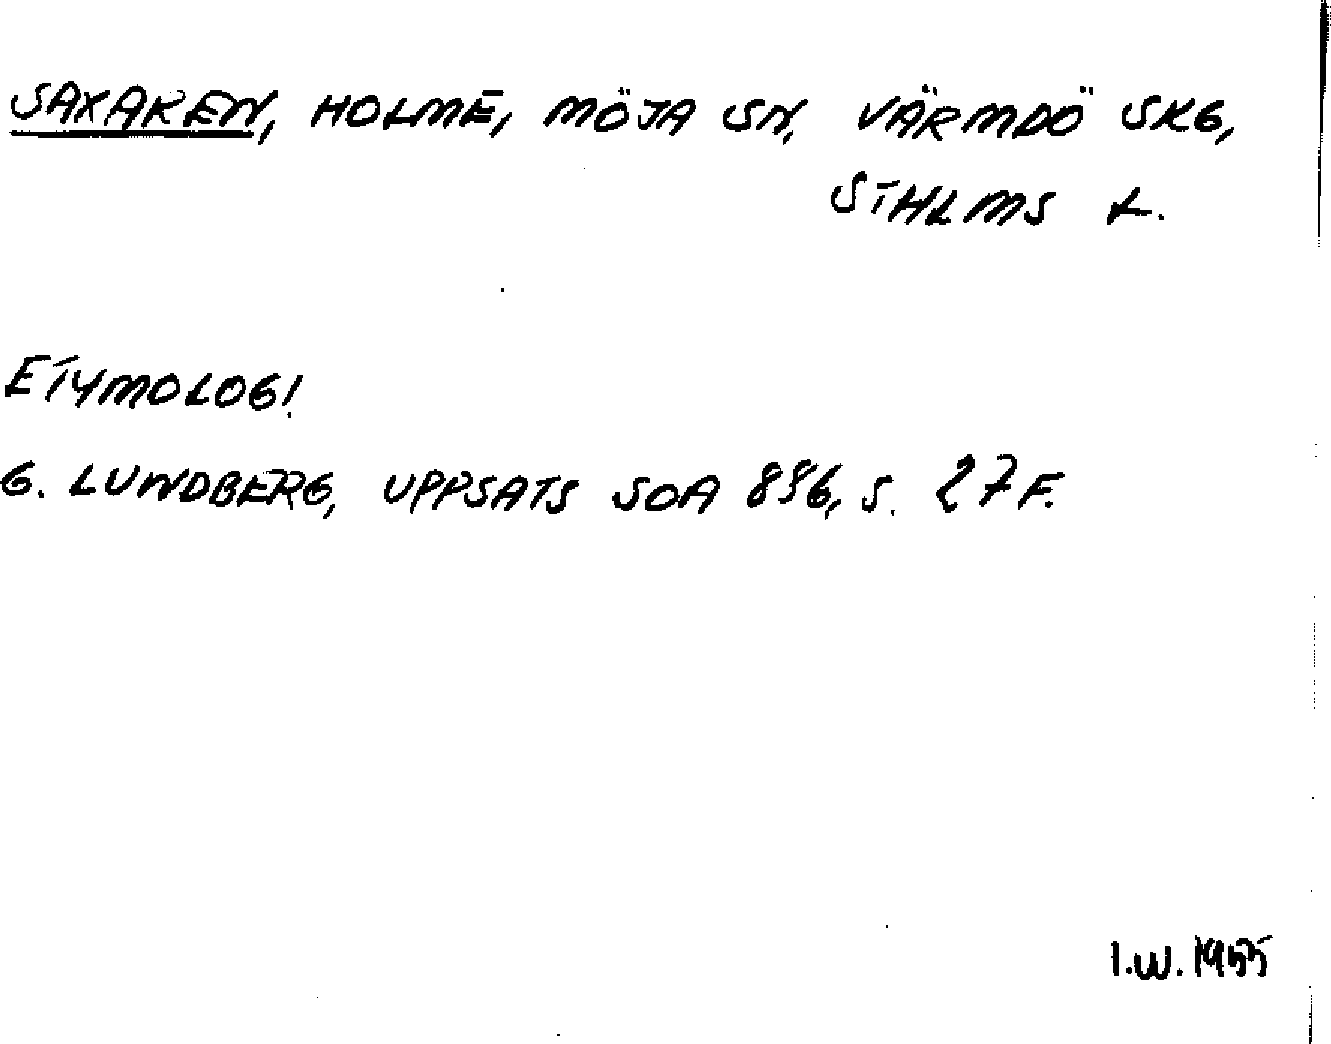 SAXAREN, HOLME, MÖJA SN, VÄRMDÖ SKG,
STHLMS L.
ETYMOLOGI
G. LUNDBERG, UPPSATS SOA 896, S. 27 F.
I.W. 1955